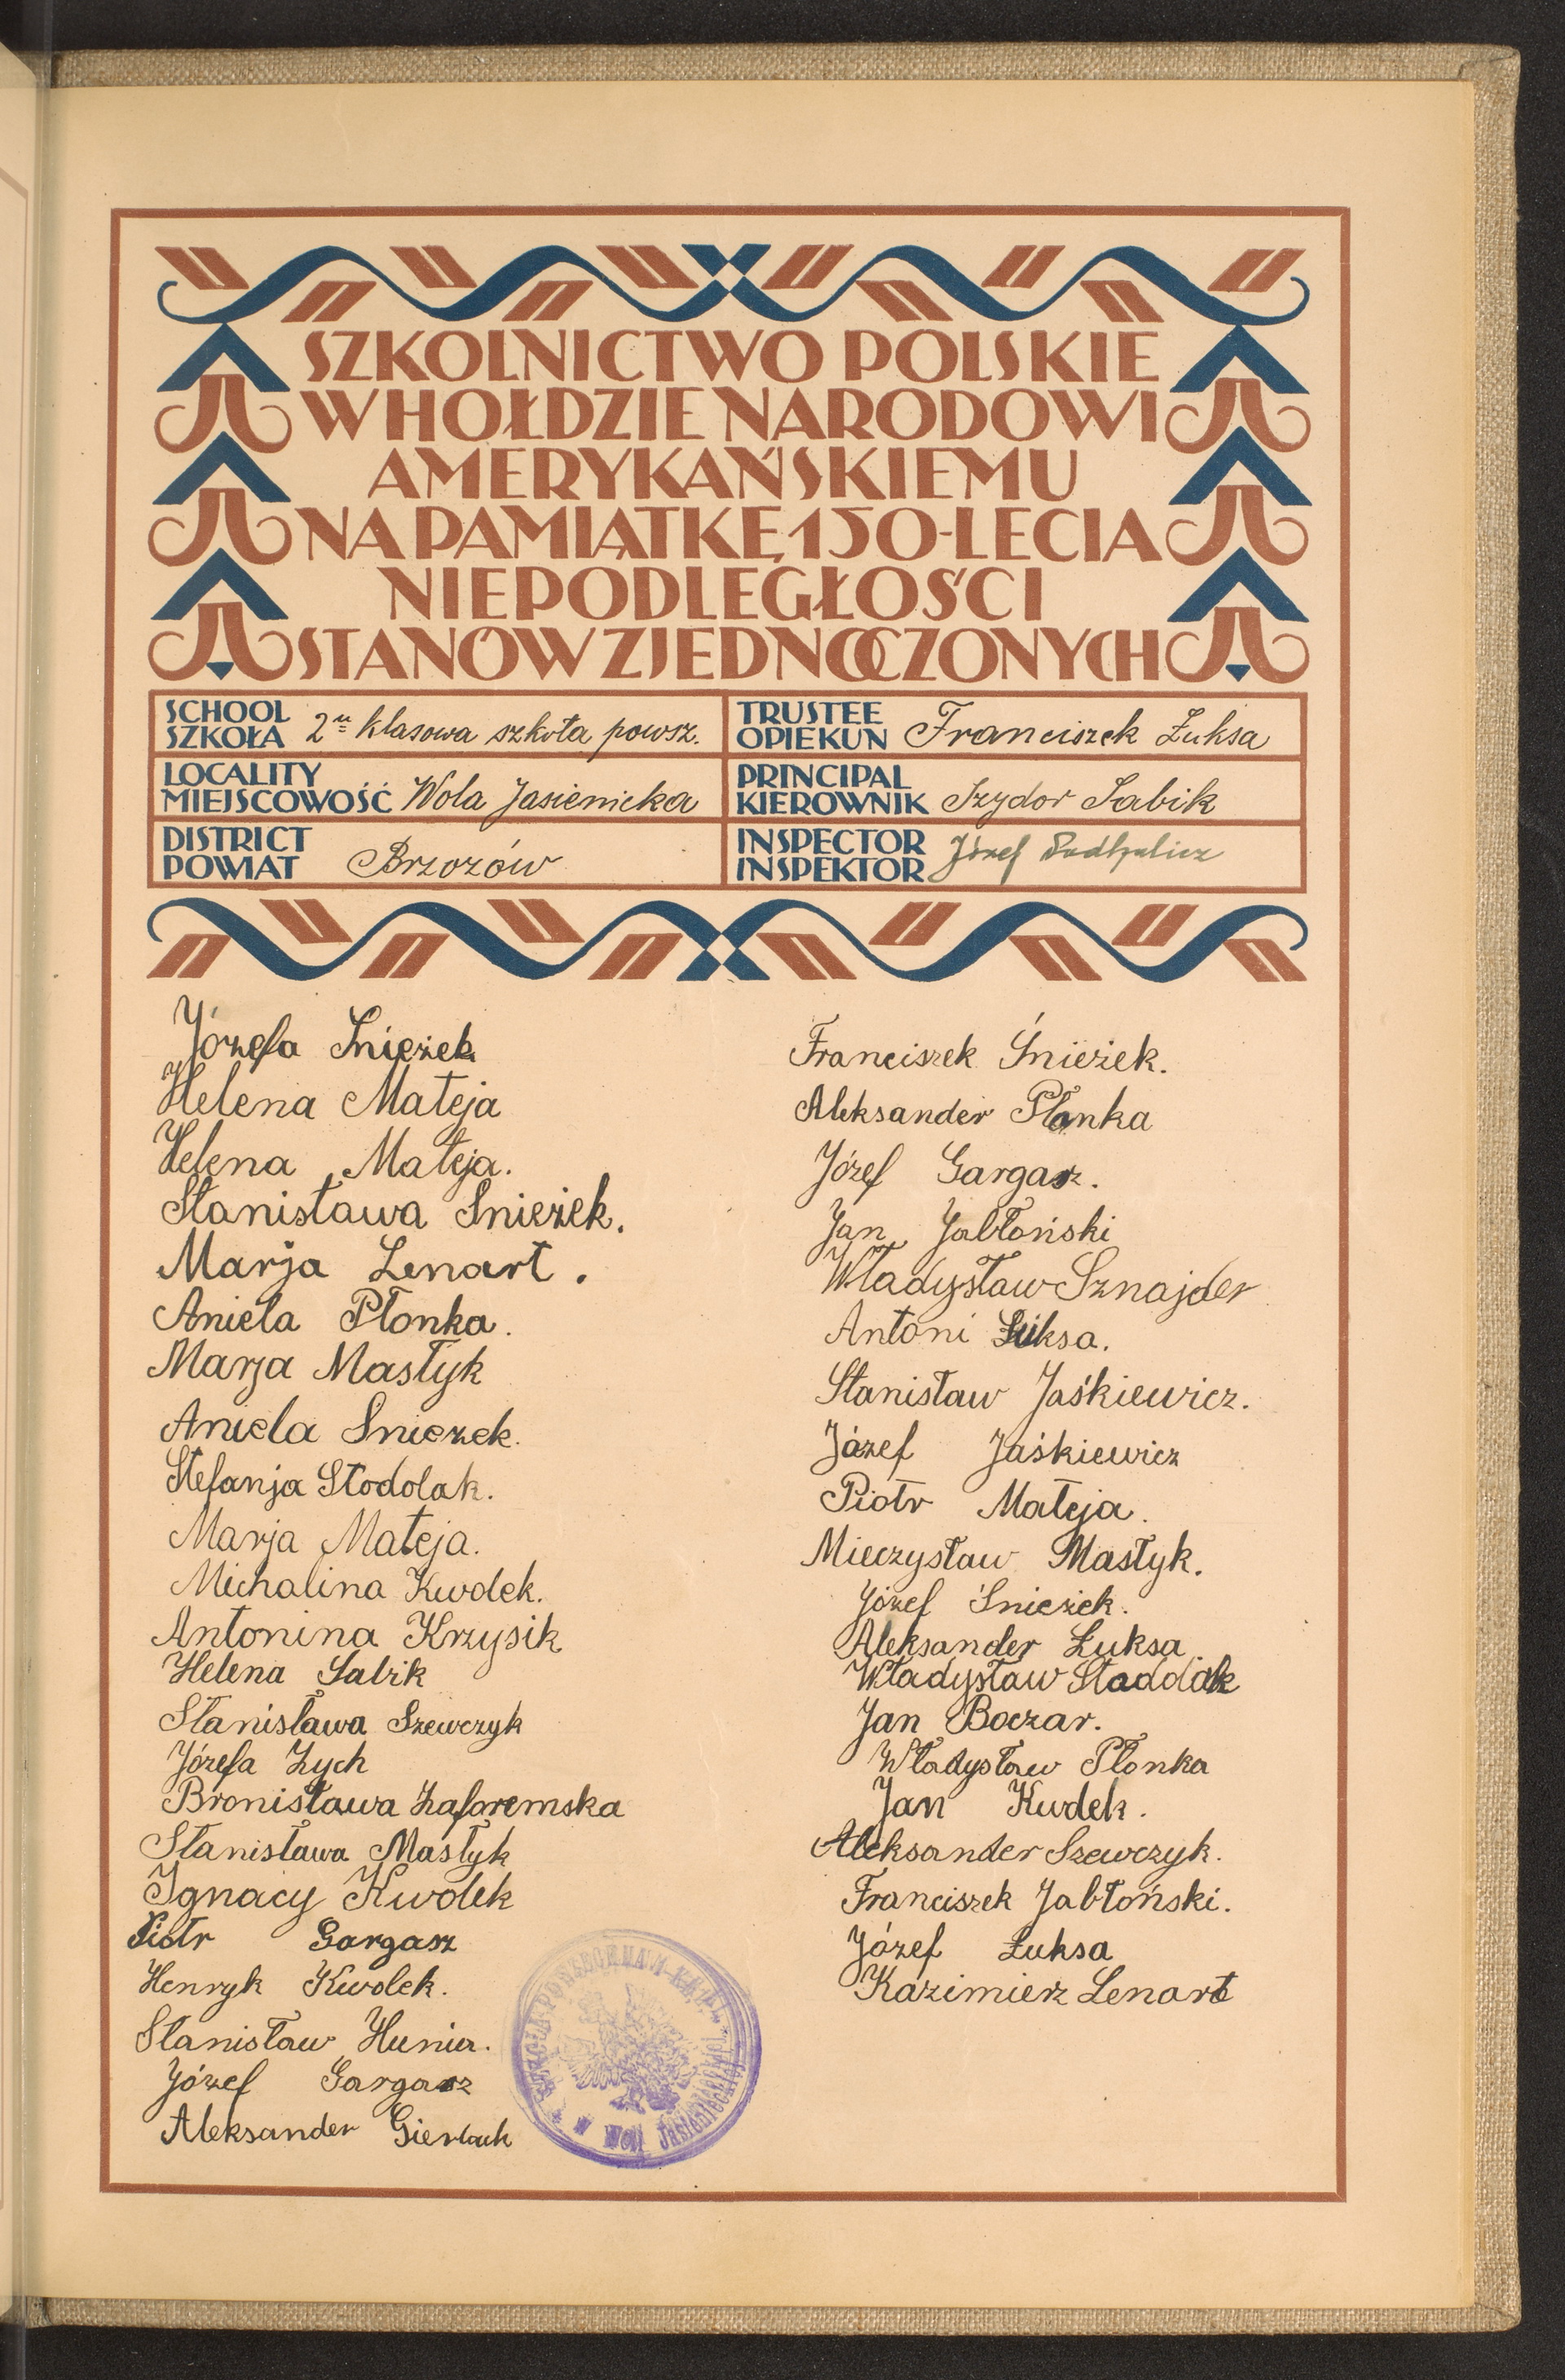 SZKOLNICTWO POLSKIE
W HOŁDZIE NARODOWI
AMERYKAŃSKIEMU
NA PAMIĄTKĘ 150-LECIA
NIEPODLEGŁOŚCI
STANÓW ZJEDNOCZONYCH
SCHOOL
SZKOŁA 2 klasowa szkoła powsz.
TRUSTEE
OPIEKUN Franciszek Łuksa
LOCALITY
MIEJSCOWOŚĆ Wola Jasienicka
PRINCIPAL
KIEROWNIK Izydor Sabik
DISTRICT
POWIAT Brzozów
INSPECTOR
INSPEKTOR Józef
Józefa Snieżek
Helena Mateja
Helena Mateja.
Stanisława Snieżek.
Marja Lenart.
Aniela Płonka.
Marja Mastyk
Aniela Sniezek.
Stefanja Stodolak.
Marja Mateja.
Michalina Kwolek.
Antonina Krzysik
Helena Sabik
Stanisława Szewczyk
Józefa Zych
Bronisława Zafaremska
Stanisława Mastyk
Ignacy Kwolek
Piotr Gargasz
Henryk Kwolek.
Stanisław Hunia.
Józef Gargasz
Aleksander Gierlach
Franciszek Śnieżek.
Aleksander Płonka
Józef Gargasz.
Jan Jabłoński
Władysław Sznajder
Antoni Łuksa.
Stanisław Jaśkiewicz.
Józef Jaśkiewicz
Piotr Mateja.
Mieczysław Mastyk.
Józef Śnieżek.
Aleksander Łuksa
Władysław
Jan Boczar.
Władysław Płonka
Jan Kwolek.
Aleksander Szewczyk.
Franciszek Jabłoński.
Józef Łuksa
Kazimierz Lenart